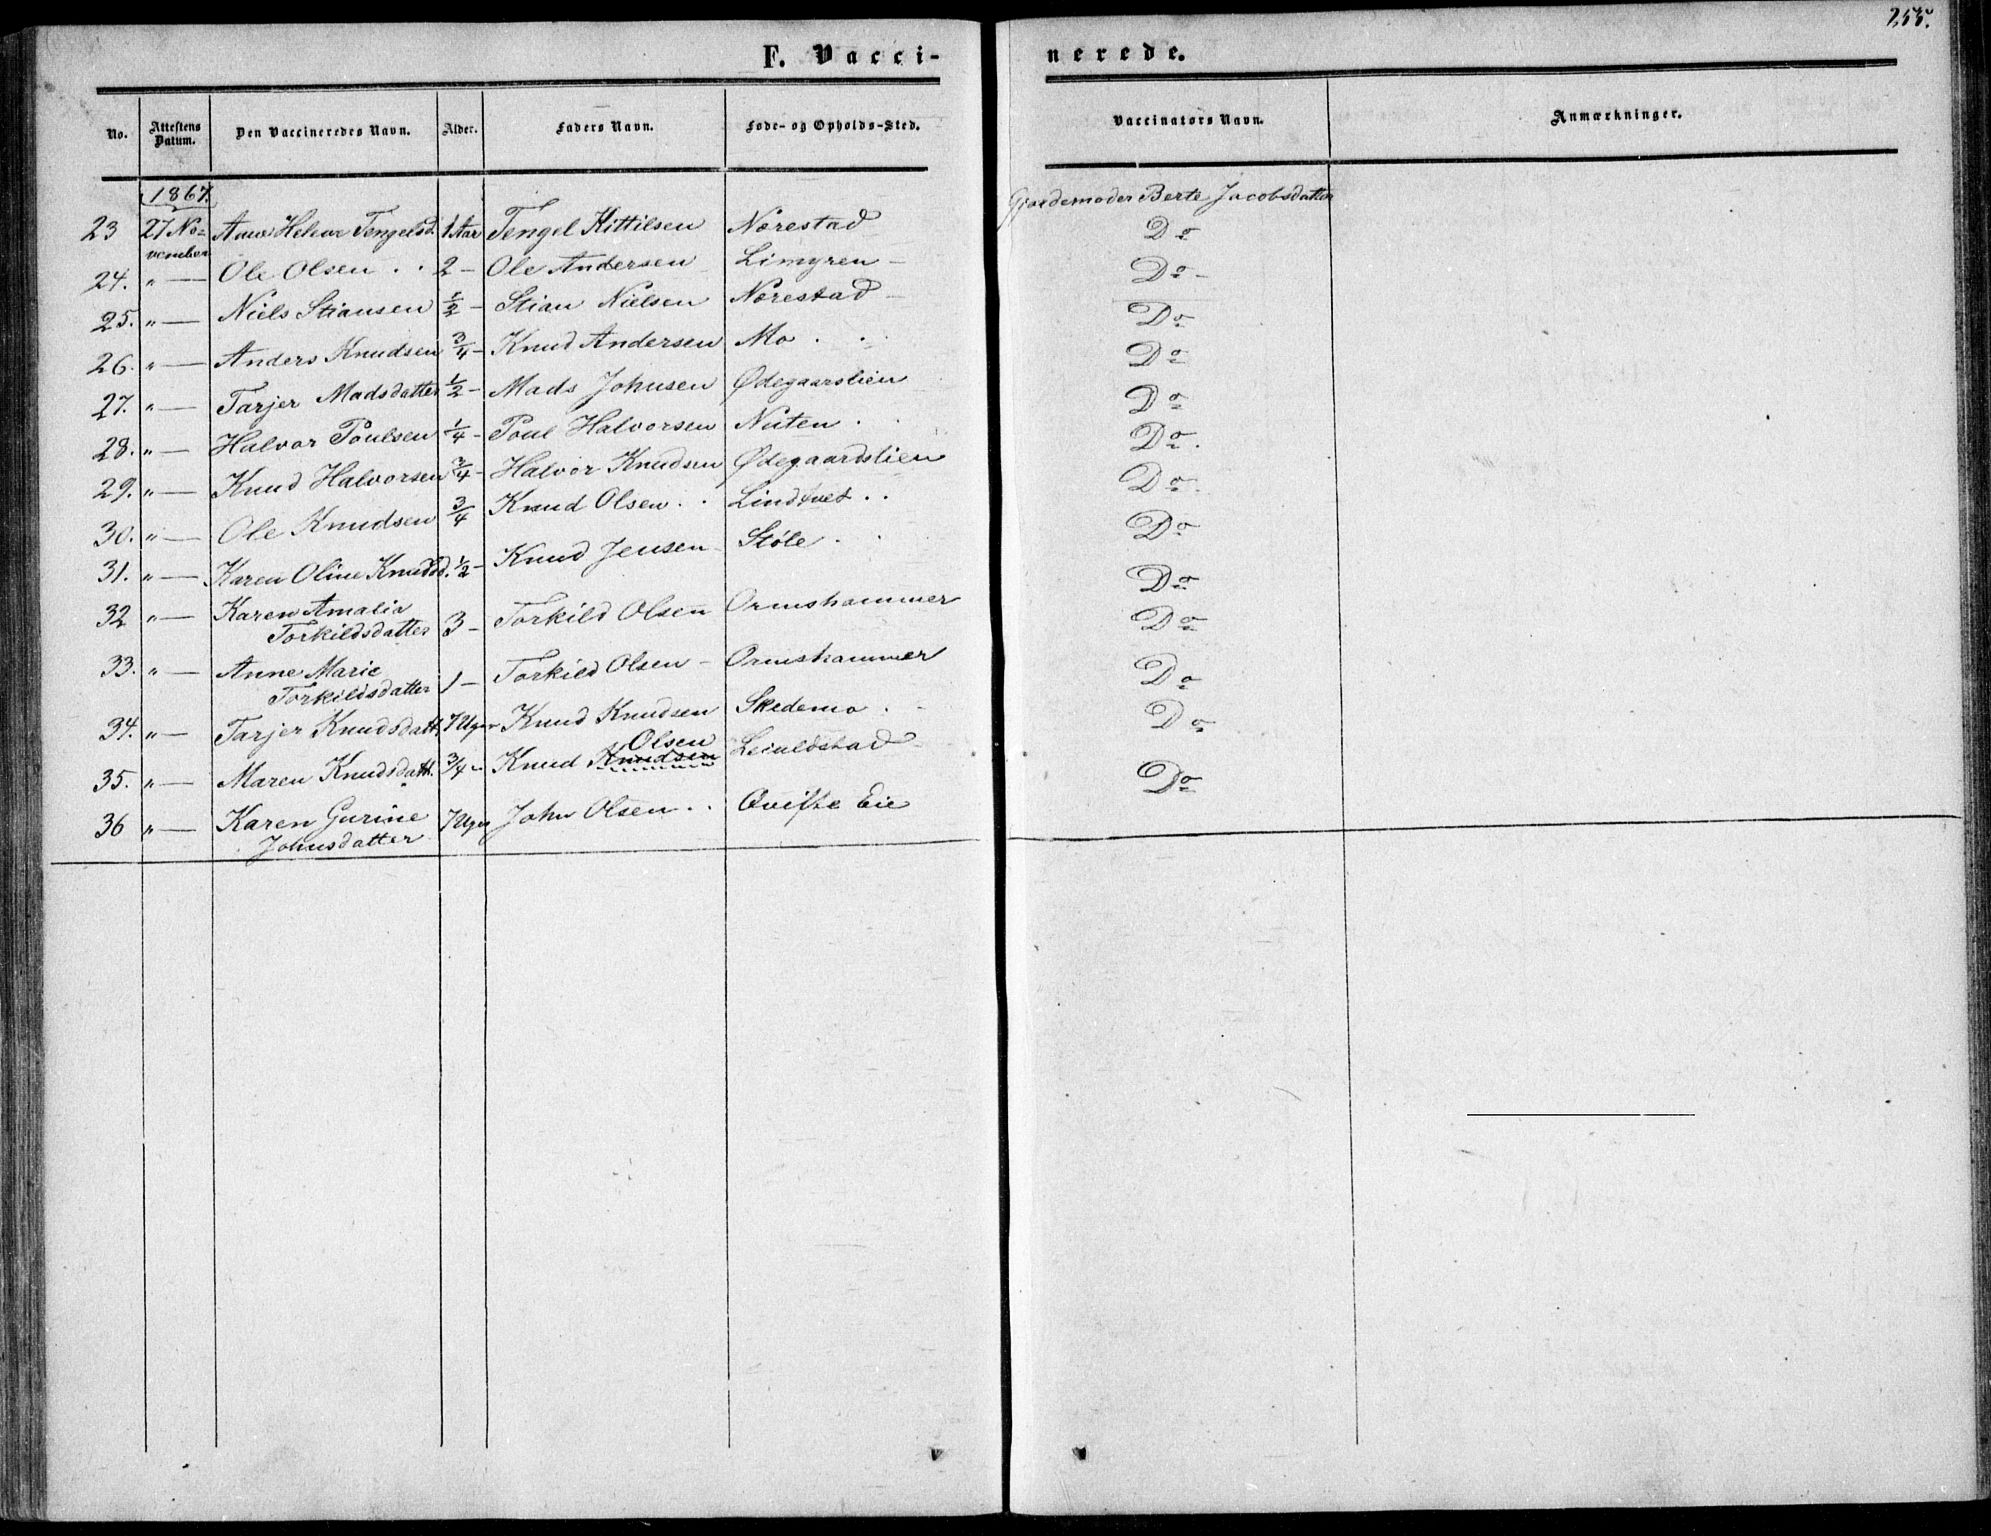 255.
F. Vacci-
nerede.
No. Attestens Datum. Den Vaccineredes Navn. Alder. Faders Navn. Føde- og Opholds-Sted. Vaccinatørs Navn. Anmærkninger.
1867.
23 27 No- Anne Helene Tengelsd. 1 Aar Tengel Kittilsen Nørestad Gjordemoder Berte Jacobsdatter
vember
24. " — Ole Olsen . . 2 - Ole Andersen Limyren - Do
25. " — Niels Stiansen 1/2 - Stian Nielsen Nørestad - Do -
26. " — Anders Knudsen 3/4 - Knud Andersen Mo . . Do
27. " — Tarjer Madsdatter 1/2 - Mads Johnsen Ødegaarslien Do
28. " — Halvor Poulsen 1/4 - Poul Halvorsen Nuten . . Do
29. " — Knud Halvorsen 3/4 - Halvor Knudsen Ødegaardslien Do.
30. " — Ole Knudsen 3/4 Knud Olsen . . Lindtvet . . Do.
31. " — Karen Oline Knudsd. 1/2 - Knud Jensen - Støle . . Do
32 " — Karen Amalia
Torkildsdatter 3 - Torkild Olsen Ormshammer Do
33. " — Anne Marie
Torkildsdatter 1 - Torkild Olsen - Ormshammer Do
34. " — Tarjer Knudsdatt. 7 Uger Knud Knudsen Skedemo . - Do
35. " — Maren Knudsdatt. 3/4 - Knud Knudsen Olsen Do
36 " — Karen Gurine
Johnsdatter 7 Uger John Olsen . . Qvifte Eie Do